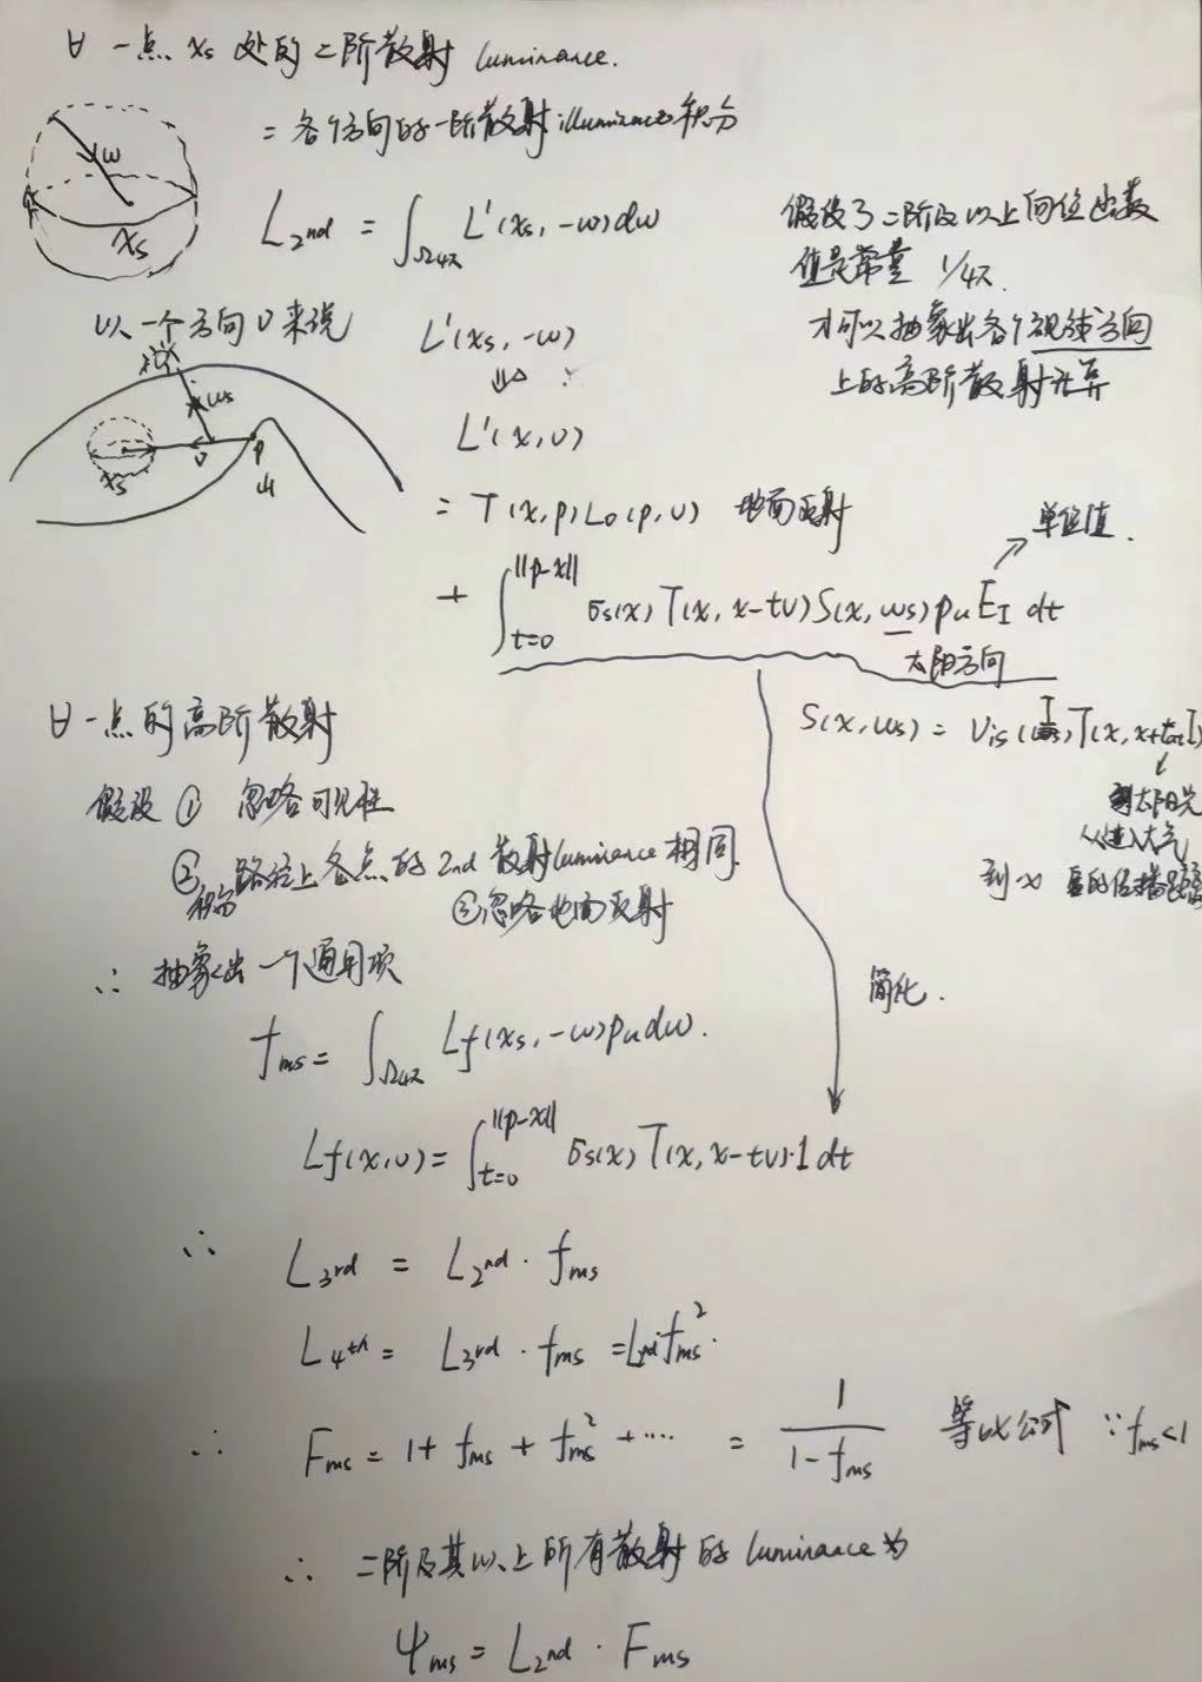 ∀ 一点 xs 处的二阶散射 luminance.
= 各个方向的一阶散射 illuminance 积分
ω
xs
L₂nd = ∫Ω4π L'(xs, -ω)dω
假设了二阶及以上向位函数
值是常量 1/4π.
才可以抽象出各个视线方向
上的高阶散射计算
以一个方向 v 来说
L'(xs, -ω)
⇓
L'(x, v)
ωs
xs
v
p
山
= T(x,p)Lo(p,v) 地面反射
+ ∫t=0 ||p-x|| σs(x)T(x, x-tv)S(x, ωs)pu E_I dt
单位值.
太阳方向
S(x, ωs) = Vis(I)T(x, x+tatm I)
到太阳光
从进入大气
到 x 点的传播路径
∀ 一点的高阶散射
假设 ① 忽略可见性
② 积分路径上各点的 2nd 散射 luminance 相同.
③ 忽略地面反射
∴ 抽象出一个通用项
简化.
fms = ∫Ω4π Lf(xs, -ω)pu dω.
Lf(x,v) = ∫t=0 ||p-x|| σs(x)T(x, x-tv)·1 dt
∴ L₃rd = L₂nd · fms
L₄th = L₃rd · fms = L₂nd fms².
∴ Fms = 1 + fms + fms² + ···· = 1/(1-fms) 等比公式 ∵ fms<1
∴ 二阶及其以上所有散射的 luminance 为
Ψms = L₂nd · Fms